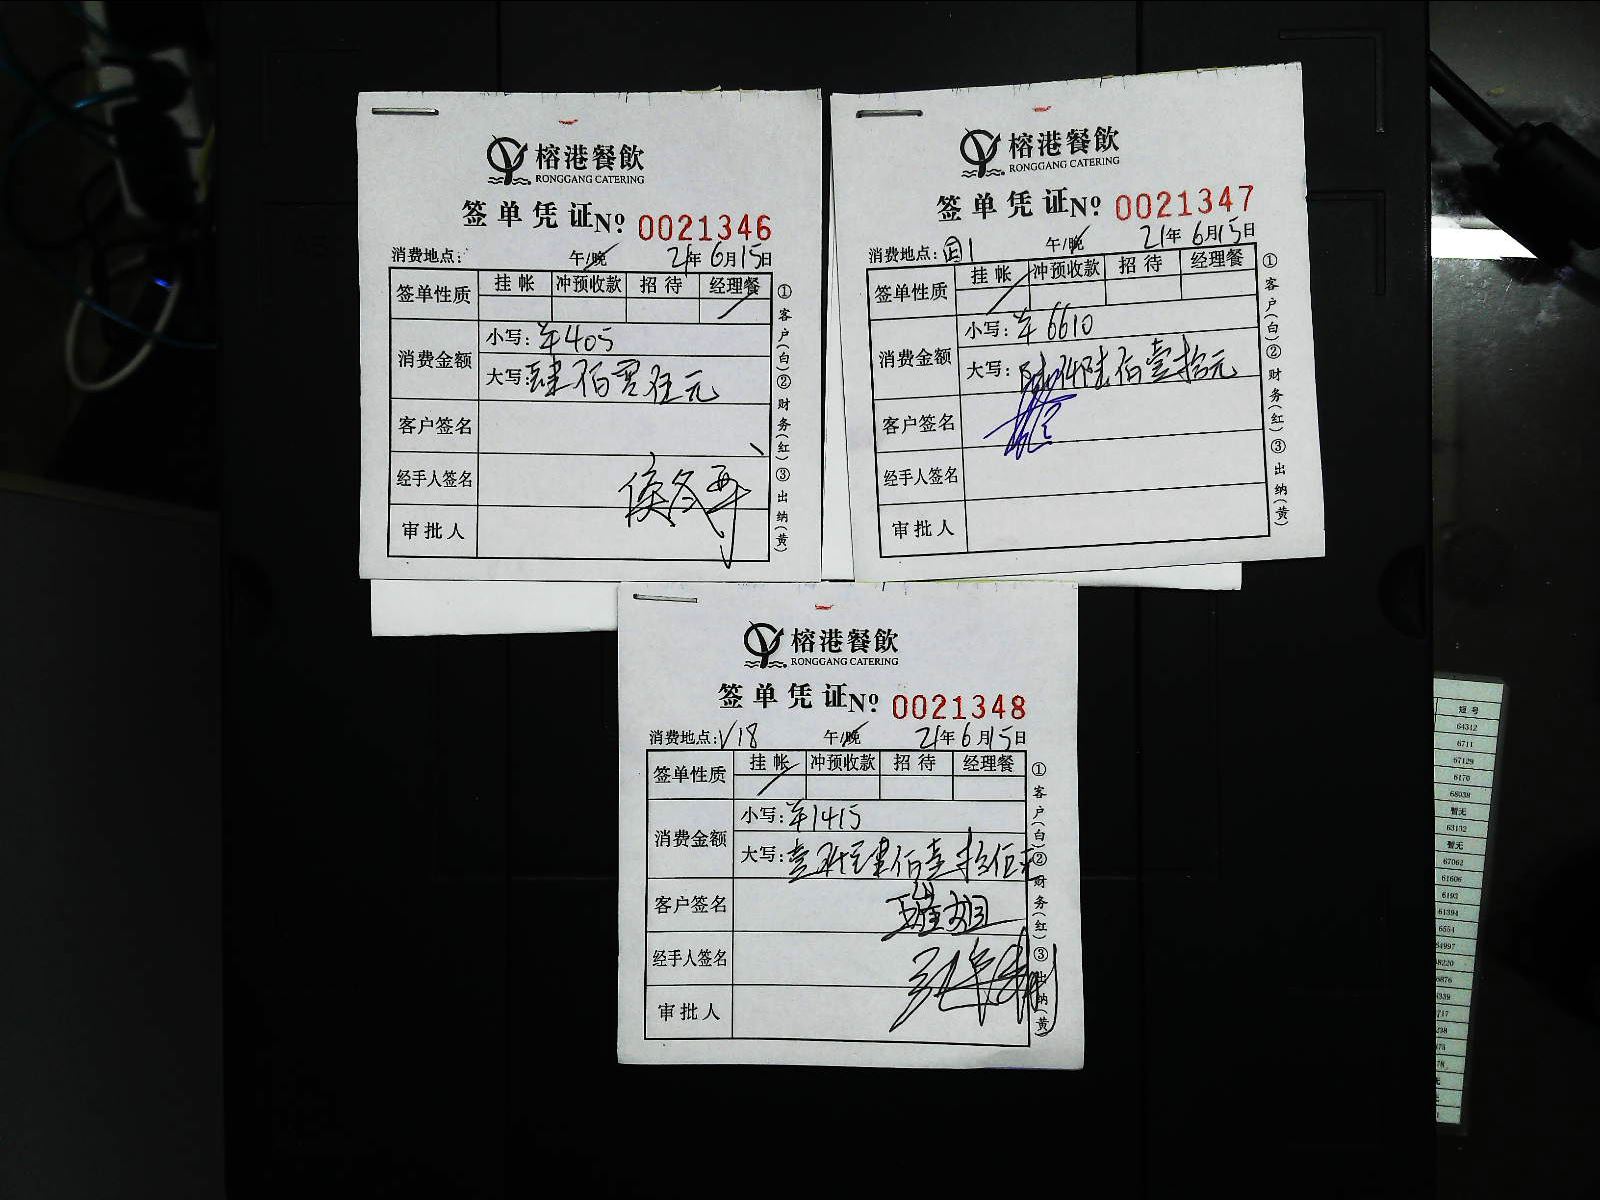 榕港餐飲
RONGGANG CATERING
签单凭证 Nº 0021346
消费地点: 午/晚 21年6月15日
签单性质 挂帐 冲预收款 招待 经理餐
消费金额 小写: ¥405
大写: 肆佰零伍元
客户签名
经手人签名
审批人
①客户(白)②财务(红)③出纳(黄)
榕港餐飲
RONGGANG CATERING
签单凭证 Nº 0021347
消费地点: 午/晚 21年6月15日
签单性质 挂帐 冲预收款 招待 经理餐
消费金额 小写: ¥6610
大写: 陆仟陆佰壹拾元
客户签名
经手人签名
审批人
①客户(白)②财务(红)③出纳(黄)
榕港餐飲
RONGGANG CATERING
签单凭证 Nº 0021348
消费地点: V18 午/晚 21年6月15日
签单性质 挂帐 冲预收款 招待 经理餐
消费金额 小写: ¥1415
大写: 壹仟肆佰壹拾伍元
客户签名
经手人签名
审批人
①客户(白)②财务(红)③出纳(黄)
短号
64312
6711
67129
6170
68038
暂无
63132
暂无
67062
61606
6193
61394
6554